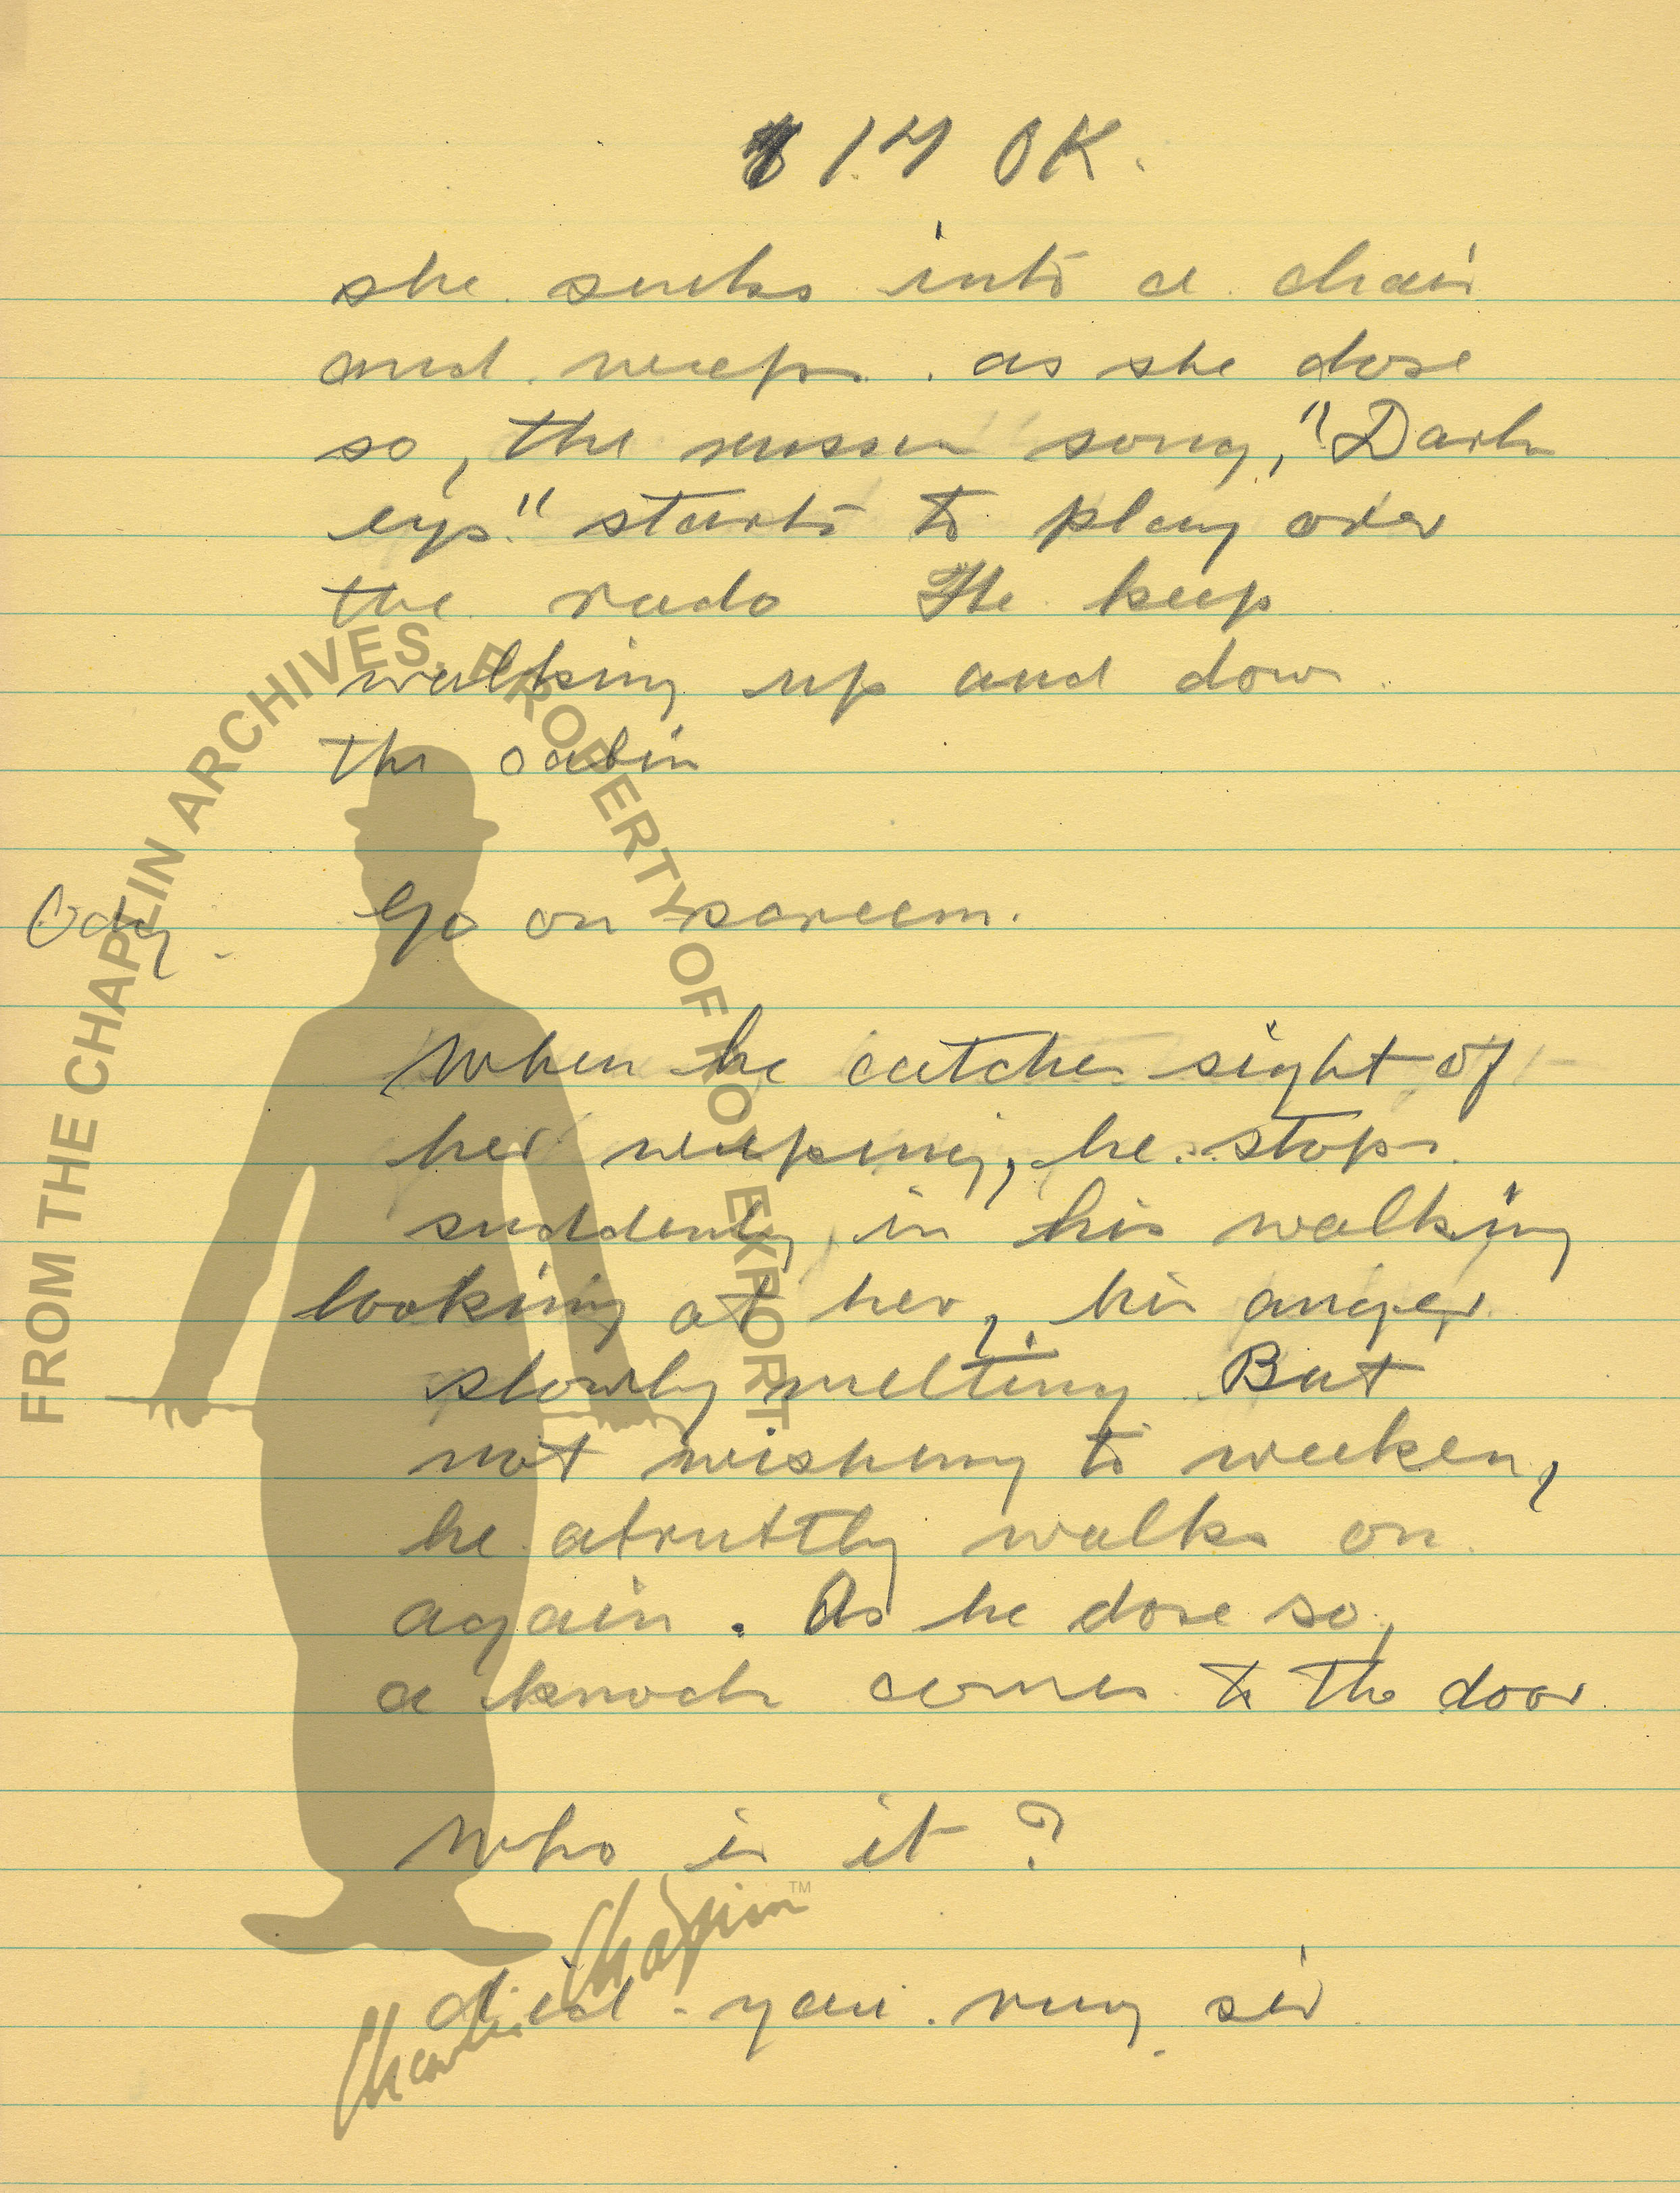 17 OK.
she sinks into a chair
and weeps. as she dose
so, the russin song, "Dark
eys" starts to play over
the rado He keep
walking up and dow
the cabin
Ody. Go on scareem.
When he catches sight of
her weeping, he stops
suddenly in his walking
looking at her, his anger
slowly melting But
not wishing to weeken,
he abruttly walks on
again. As he dose so,
a knock comes to the door
Who is it?
did you ring sir
FROM THE CHAPLIN ARCHIVES. PROPERTY OF ROY EXPORT
Charlie Chaplin™